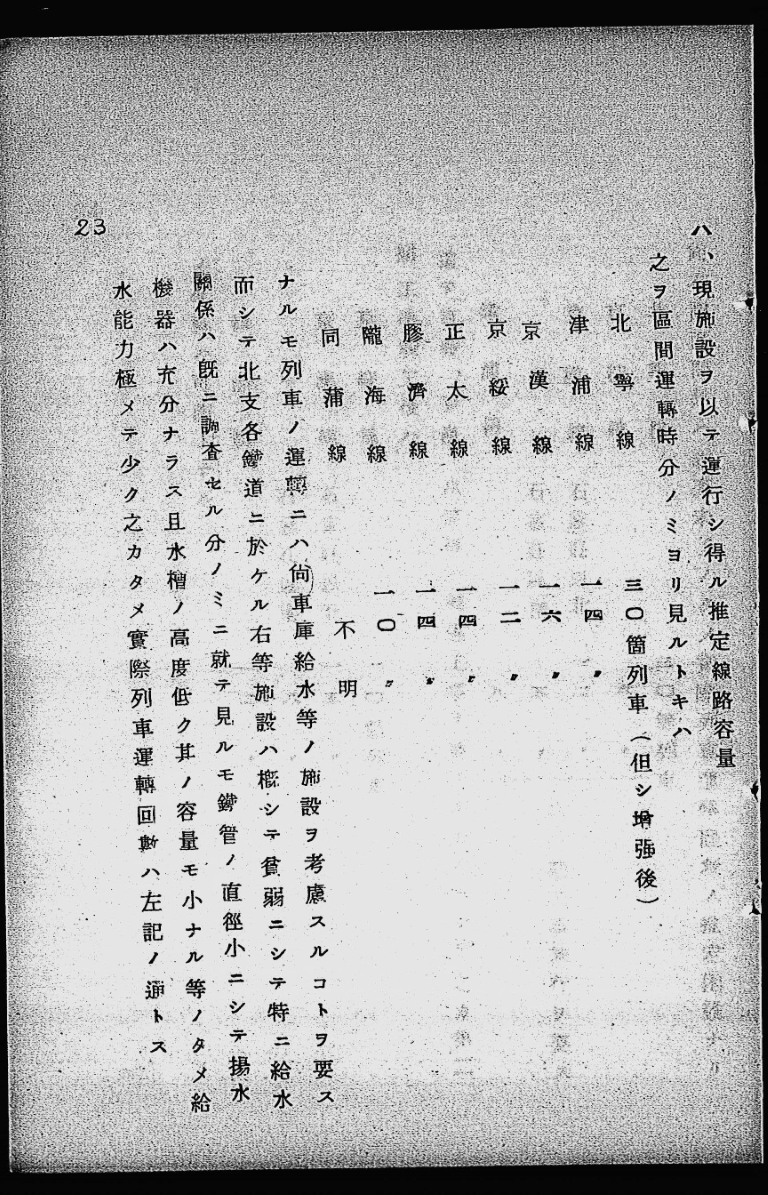 ハ、現施設ヲ以テ運行シ得ル推定線路容量
之ヲ區間運轉時分ノミヨリ見ルトキハ
北寧線 三〇箇列車（但シ増强後）
津浦線 一四〃
京漢線 一六〃
京綏線 一二〃
正太線 一四〃
膠濟線 一四〃
隴海線 一〇〃
同蒲線 不明
ナルモ列車ノ運轉ニハ尙車庫給水等ノ施設ヲ考慮スルコトヲ要ス
而シテ北支各鐵道ニ於ケル右等施設ハ概シテ貧弱ニシテ特ニ給水
關係ハ既ニ調査セル分ノミニ就テ見ルモ鐵管ノ直徑小ニシテ揚水
機器ハ充分ナラス且水槽ノ高度低ク其ノ容量モ小ナル等ノタメ給
水能力極メテ少ク之カタメ實際列車運轉回數ハ左記ノ通トス
23